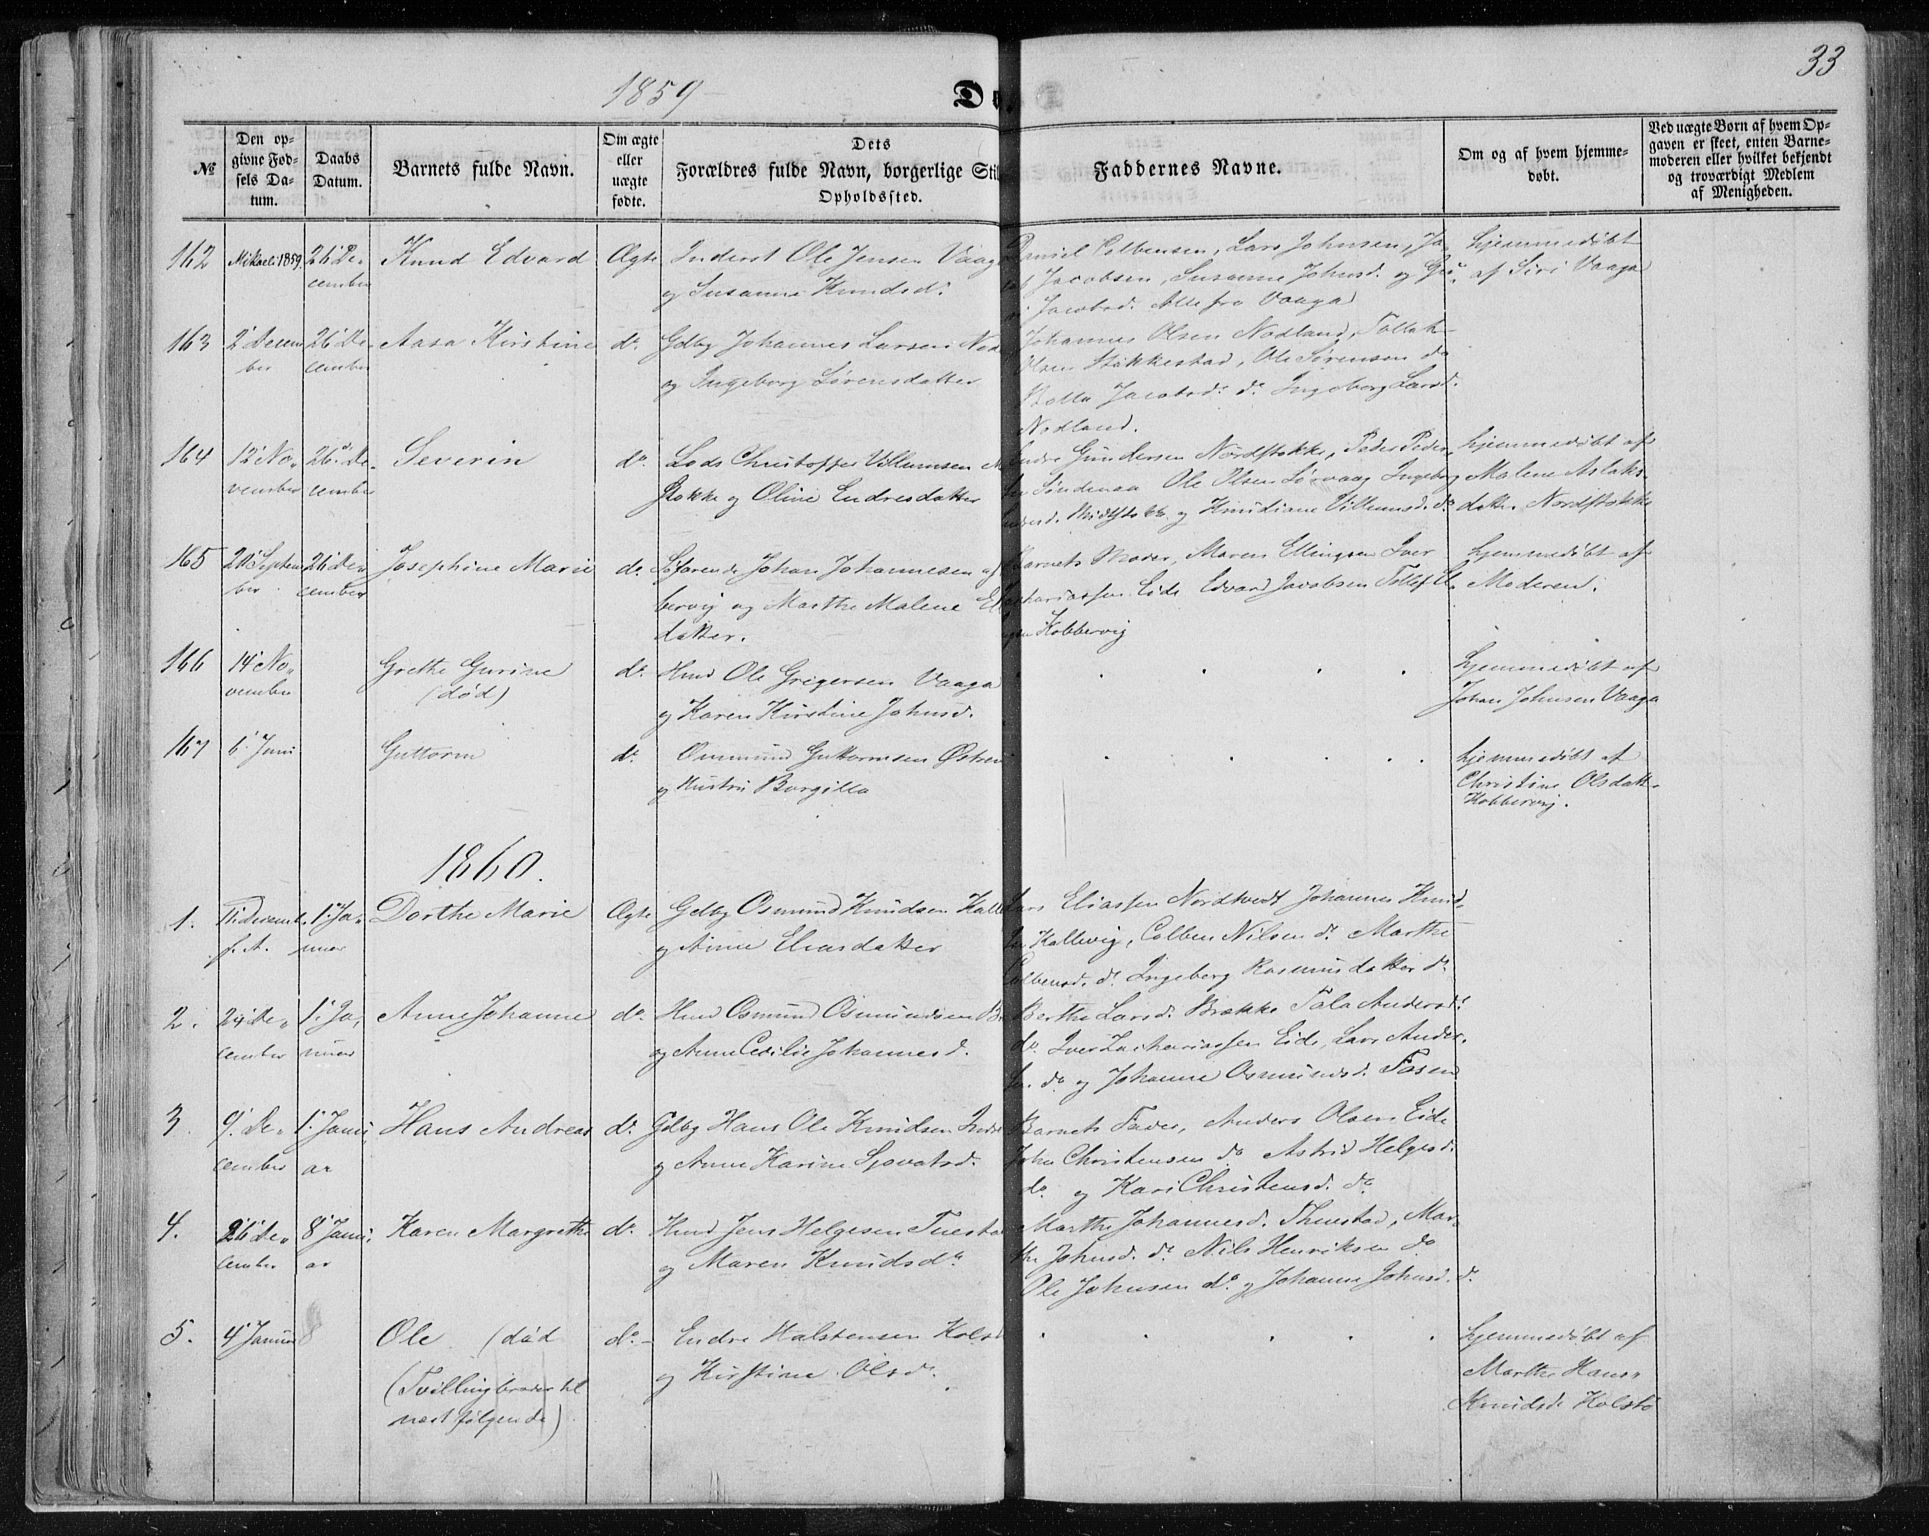 33
1859
Nº
Den op-
givne Fød-
sels Da-
tum.
Daabs
Datum.
Barnets fulde Navn.
Om ægte
eller
uægte
fødte.
Dets
Forældres fulde Navn, borgerlige Stil
Opholdssted.
Faddernes Navne.
Om og af hvem hjemme-
døbt.
Ved uægte Børn af hvem Op-
gaven er skeet, enten Barne-
moderen eller hvilket bekjendt
og troværdigt Medlem
af Menigheden.
162
Mikaeli 1859
26' De-
cember
Knud Edvard
Ægte
Inderst Ole Jensen Vaag
og Susanne Knudsdr.
Daniel Colbensen, Lars Johnsen, Ja-
Jacobsen, Susanne Johnsd. og
Jacobsd. Alle fra Vaaga
hjemmedøbt
af Siri Vaaga
163
2' Decem
ber
26' De-
cember
Aasa Kirstine
do.
Gdbr Johannes Larsen
og Ingeborg Sørensdatter
Johannes Olsen Nodland, Tollak
Olsen Stakkestad, Ole Sørensen do
Jacobsd. do. Ingeborg Larsd.
Nodland.
164
12' No-
vember
26' De-
cember
Severin
do.
Lods Christoffer Villumsen
Stokke og Oline Endresdatter
Endre Gundersen Nordstokke, Peder Peder-
Søndenaa Ole Olsen Sørvaag Ingeborg
Midtstokke og Knudiane Villumsd. do
hjemmedøbt af
Malene Aslaks-
datter Nordstokke
165
20' Septem
ber
26' De-
cember
Josephine Marie
do.
Søfarende Johan Johannesen
bervig og Marthe Malene El
datter.
Barnets Moder, Maren Ellingsen Iver
Zachariassen Eide Edvard Jacobsen Tollef El-
Kobbervig
hjemmedøbt af
Moderen.
166
14' No-
vember
Grethe Gurine
(død)
do.
Hmd Ole Grigersen Vaaga
og Karen Kirstine Johnsd.
hjemmedøbt af
Johan Johnsen Vaaga
167
6' Juni
Guttorm
do.
Osmund Guttormsen
og Hustru Borgilla
hjemmedøbt af
Christine Olsdatt.
Kobbervig.
1860.
1.
11. Decemb.
f. A.
1' Ja-
nuar
Dorthe Marie
Ægte
Gdbr Osmund Knudsen Kalle
og Anne Eliasdatter
Lars Eliassen Nordtvedt Johannes Knud-
Kallevig, Colben Nilsen do. Marthe
Colbensd. do. Ingeborg Rasmusdatter do.
2.
24' De-
cember
1' Ja-
nuar
Anne Johanne
do.
Hmd Osmund Osmundsen
og Anne Cecilie Johannesd.
Berthe Larsd. Brække Tala Andersd.
do. Iver Zachariassen Eide, Lars Ander-
sen do og Johanne Osmundsd. Fosen
3.
9' De-
cember
1' Janu
ar
Hans Andreas
do.
Gdbr Hans Ole Knudsen
og Anne Karine Sjovatsd.
Barnets Fader, Anders Olsen Eide
John Christensen do Astrid Helgesd.
do. og Kari Christensd. do
4.
26' De-
cember
8' Janu
ar
Karen Margrethe
do.
Hmd Jens Helgesen Tuesta
og Maren Knudsdr.
Marthe Johannesd. Thuestad, Mar-
the Johnsd. do. Nils Henriksen do
Ole Johnsen do. og Johanne Johnsd. do.
5.
4' Januar
8
Ole (død
(Tvillingbroder til
næstfølgende)
do.
Endre Halstensen Kolst
og Kirstine Olsd.
hjemmedøbt af
Marthe Hans-
Knudsd. Kolstø